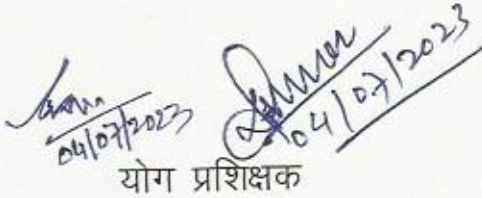 04/07/2023
04/07/2023
योग प्रशिक्षक